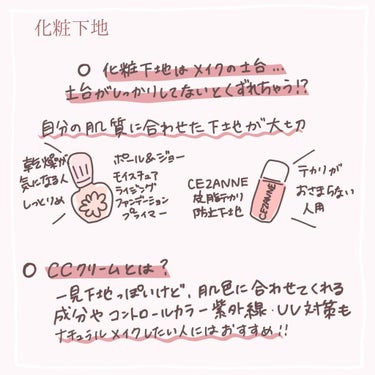 化粧下地
○ 化粧下地はメイクの土台…
土台がしっかりしてないとくずれちゃう!?
自分の肌質に合わせた下地が大切
乾燥が
気になる人
しっとりめ
ポール&ジョー
モイスチュア
ライジング
ファンデーション
プライマー
CEZANNE
皮脂テカリ
防止下地
CEZANNE
テカリが
おさまらない
人用
○ CCクリームとは?
一見下地っぽいけど、肌色に合わせてくれる
成分やコントロールカラー紫外線・UV対策も
ナチュラルメイクしたい人にはおすすめ!!